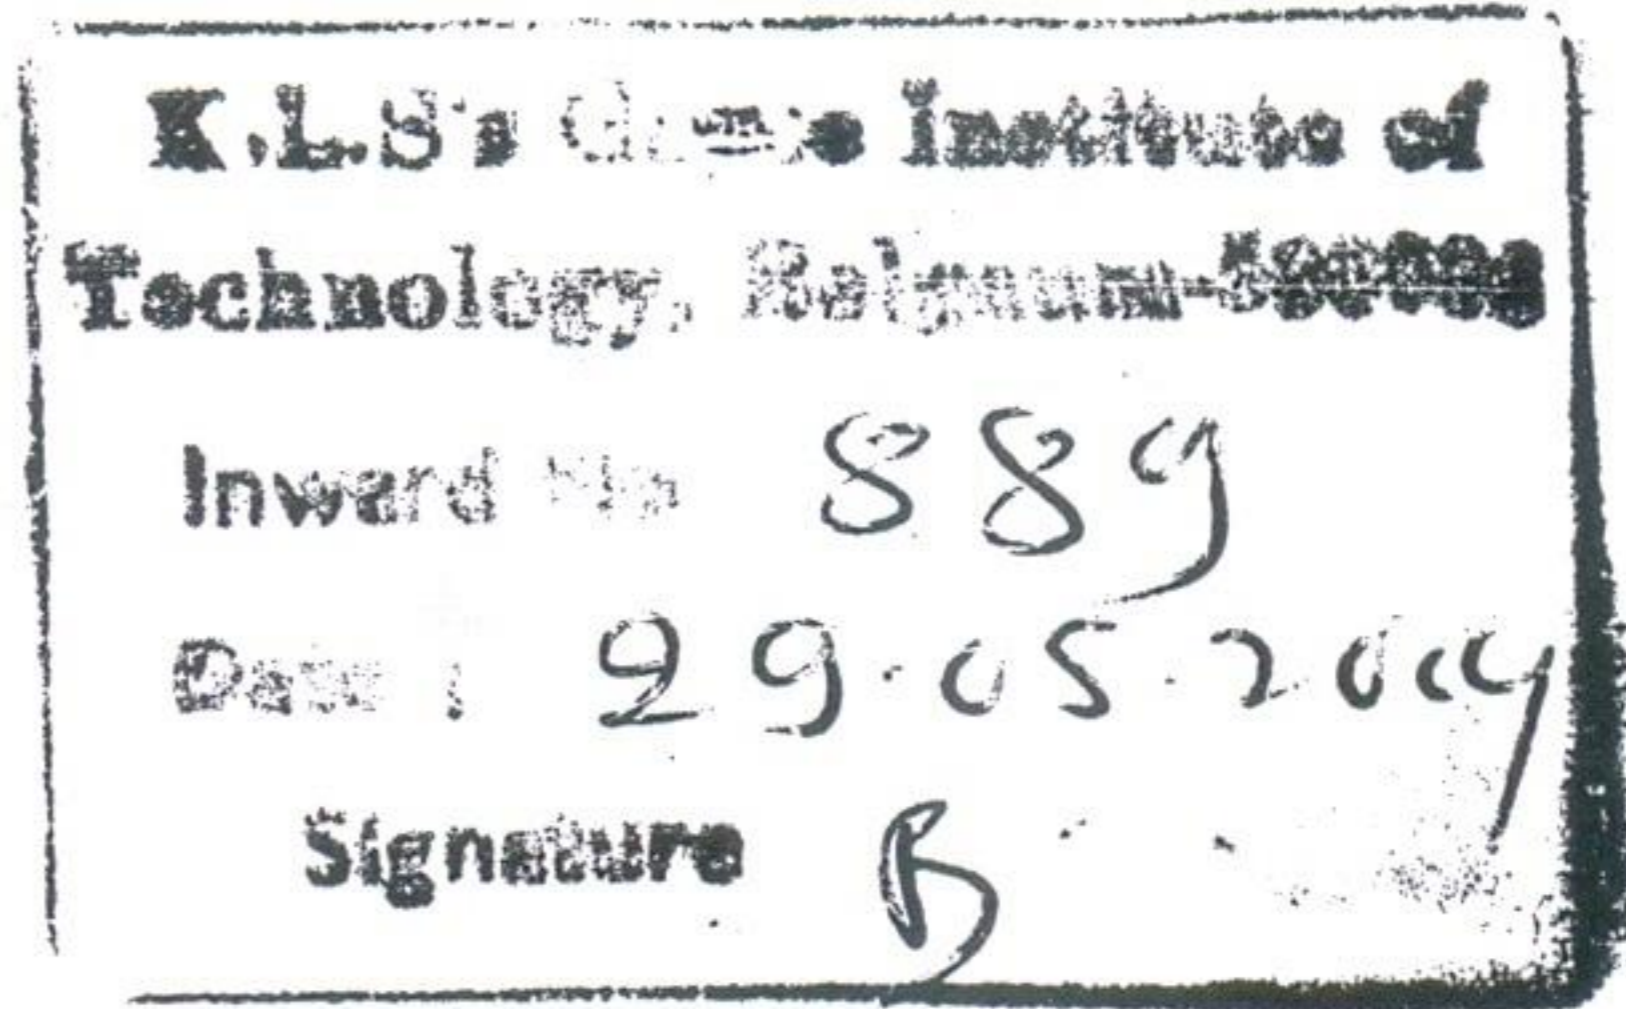 K.L.S's Institute of
Technology, Belgaum
Inward No 889
Date : 29.05.2014
Signature